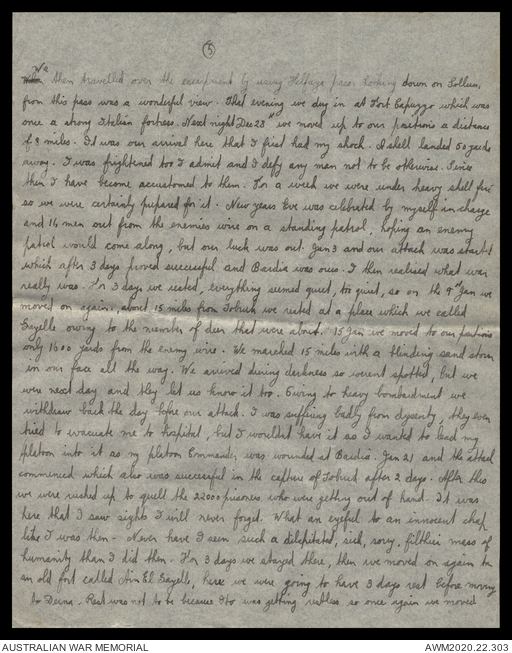 (5)
We
then travelled over the escarpment by using Helfaya pass looking down on Sollum,
from this pass was a wonderful view. That evening we dug in at Fort Capuzzo which was
once a strong Italian fortress. Next night Dec 28 we moved up to our positions a distance
of 8 miles. It was our arrival here that I first had my shock. A shell landed 50 yards
away. I was frightened too I admit and I defy any man not to be otherwise. Since
then I have become accustomed to them. For a week we were under heavy shell fire
so we were certainly prepared for it. New years Eve was celebrated by myself in charge
and 14 men out from the enemies wire on a standing patrol, hoping an enemy
patrol would come along, but our luck was out. Jan 3 and our attack was started
which after 3 days proved successful and Bardia was ours. I then realised what war
really was. For 3 days we rested, everything seemed quiet, too quiet, so on the 9th Jan we
moved on again, about 15 miles from Tobruk we rested at a place which we called
Gazelle owing to the number of deer that were about. 15 Jan we moved to our positions
only 1600 yards from the enemy wire. We marched 15 miles with a blinding sand storm
in our face all the way. We arrived during darkness so werent spotted, but we
were next day and they let us know it too. Owing to heavy bombardment we
withdrew back the day before our attack. I was suffering badly from dysentry, they even
tried to evacuate me to hospital, but I wouldnt have it as I wanted to lead my
platoon into it as my platoon Commander was wounded at Bardia. Jan 21 and the attack
commenced which also was successful in the capture of Tobruk after 2 days. After this
we were rushed up to quell the 22000 prisoners who were getting out of hand. It was
here that I saw sights I will never forget. What an eyeful to an innocent chap
like I was then - Never have I seen such a dilapitated, sick, sorry, filthier mass of
humanity than I did then. For 3 days we stayed there, then we moved on again to
an old fort called Ain El Gazelle, here we were going to have 3 days rest before moving
to Derna. Rest was not to be because Ito was getting restless so once again we moved
AUSTRALIAN WAR MEMORIAL
AWM2020.22.303